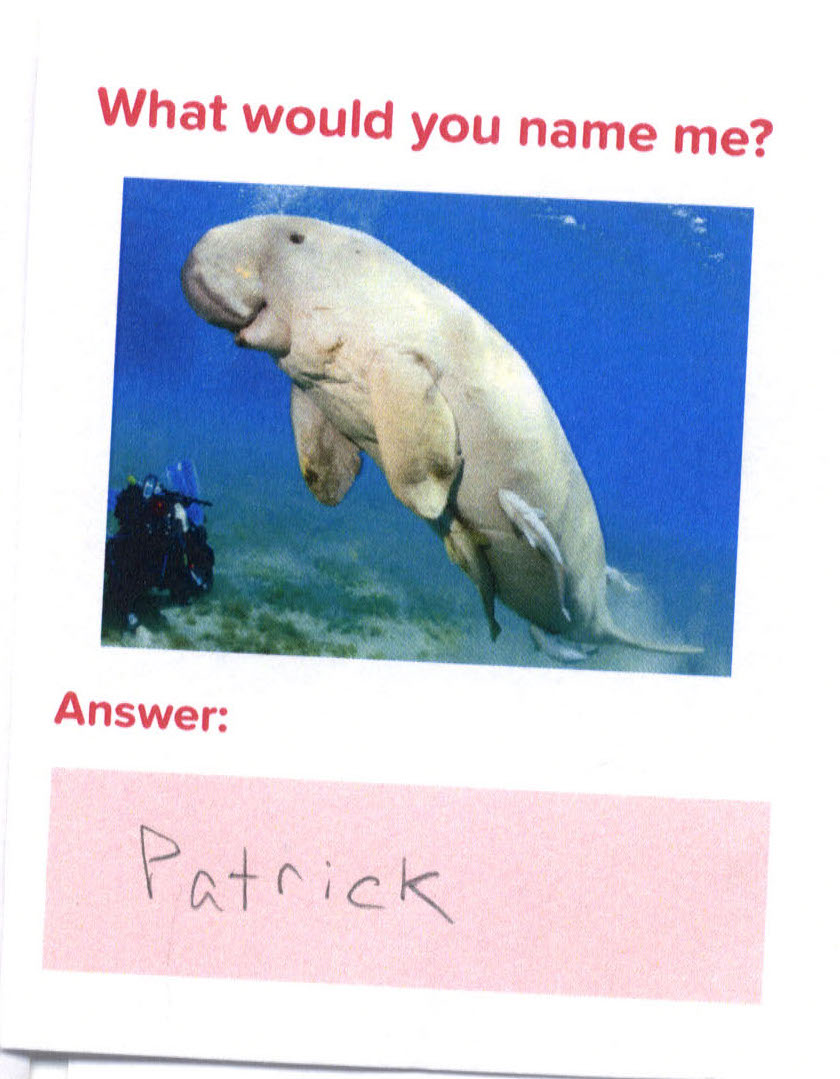 What would you name me?
Answer:
Patrick